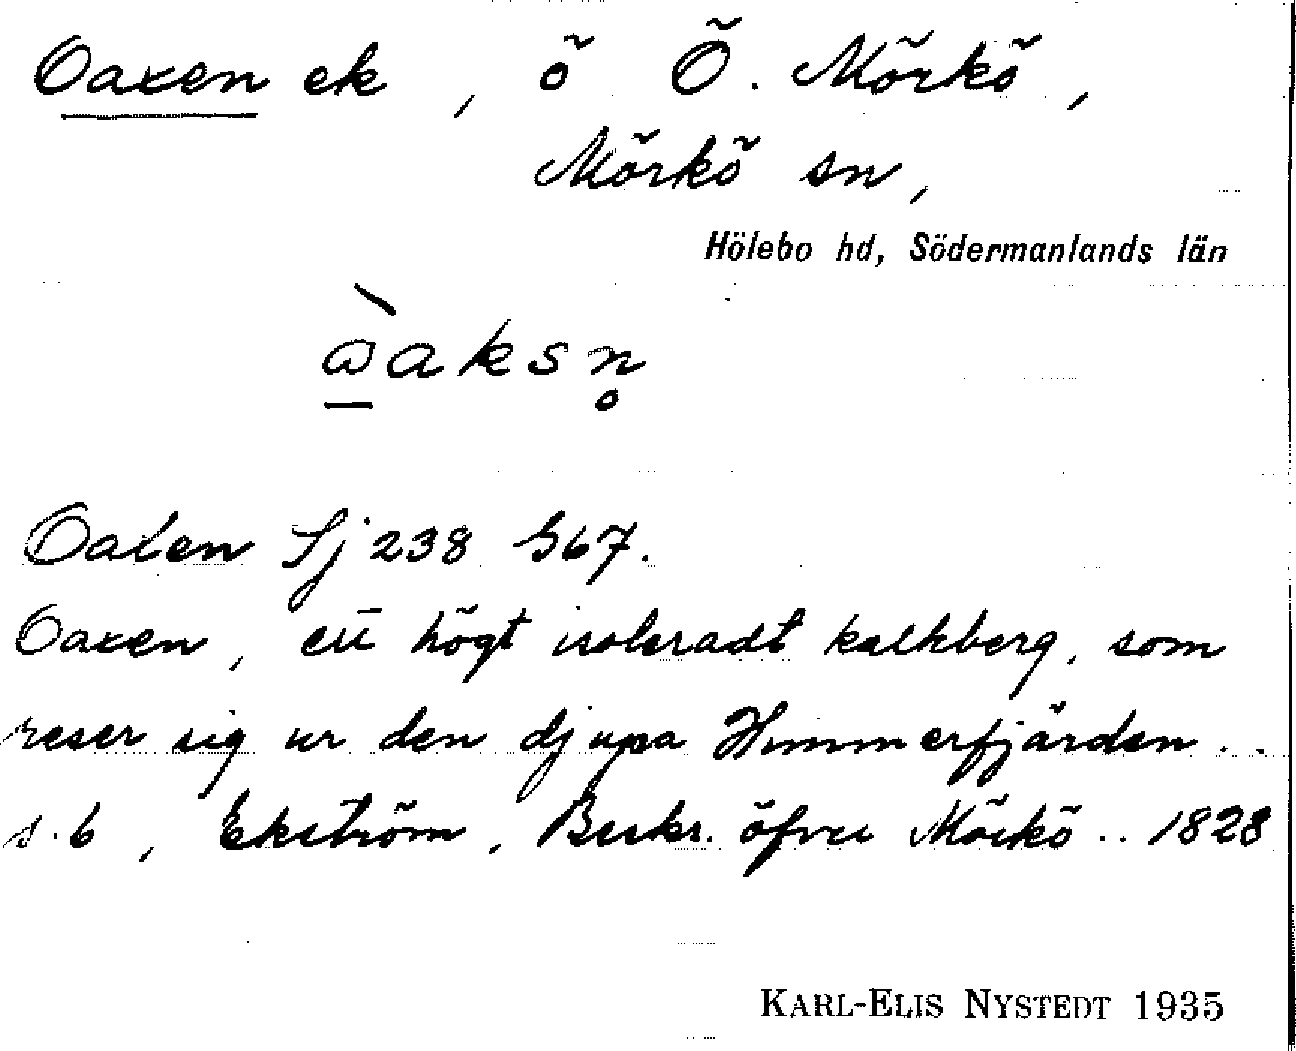 Oaxen ek, ö Ö. Mörkö,
Mörkö sn,
Hölebo hd, Södermanlands län
ὼ̲aksn̥
Oaxen Sj 238 S67.
Oaxen, ett högt isoleradt kalkberg, som
reser sig ur den djupa Himmerfjärden..
s. 6, Ekström, Beskr. öfver Mörkö.. 1828
KARL-ELIS NYSTEDT 1935